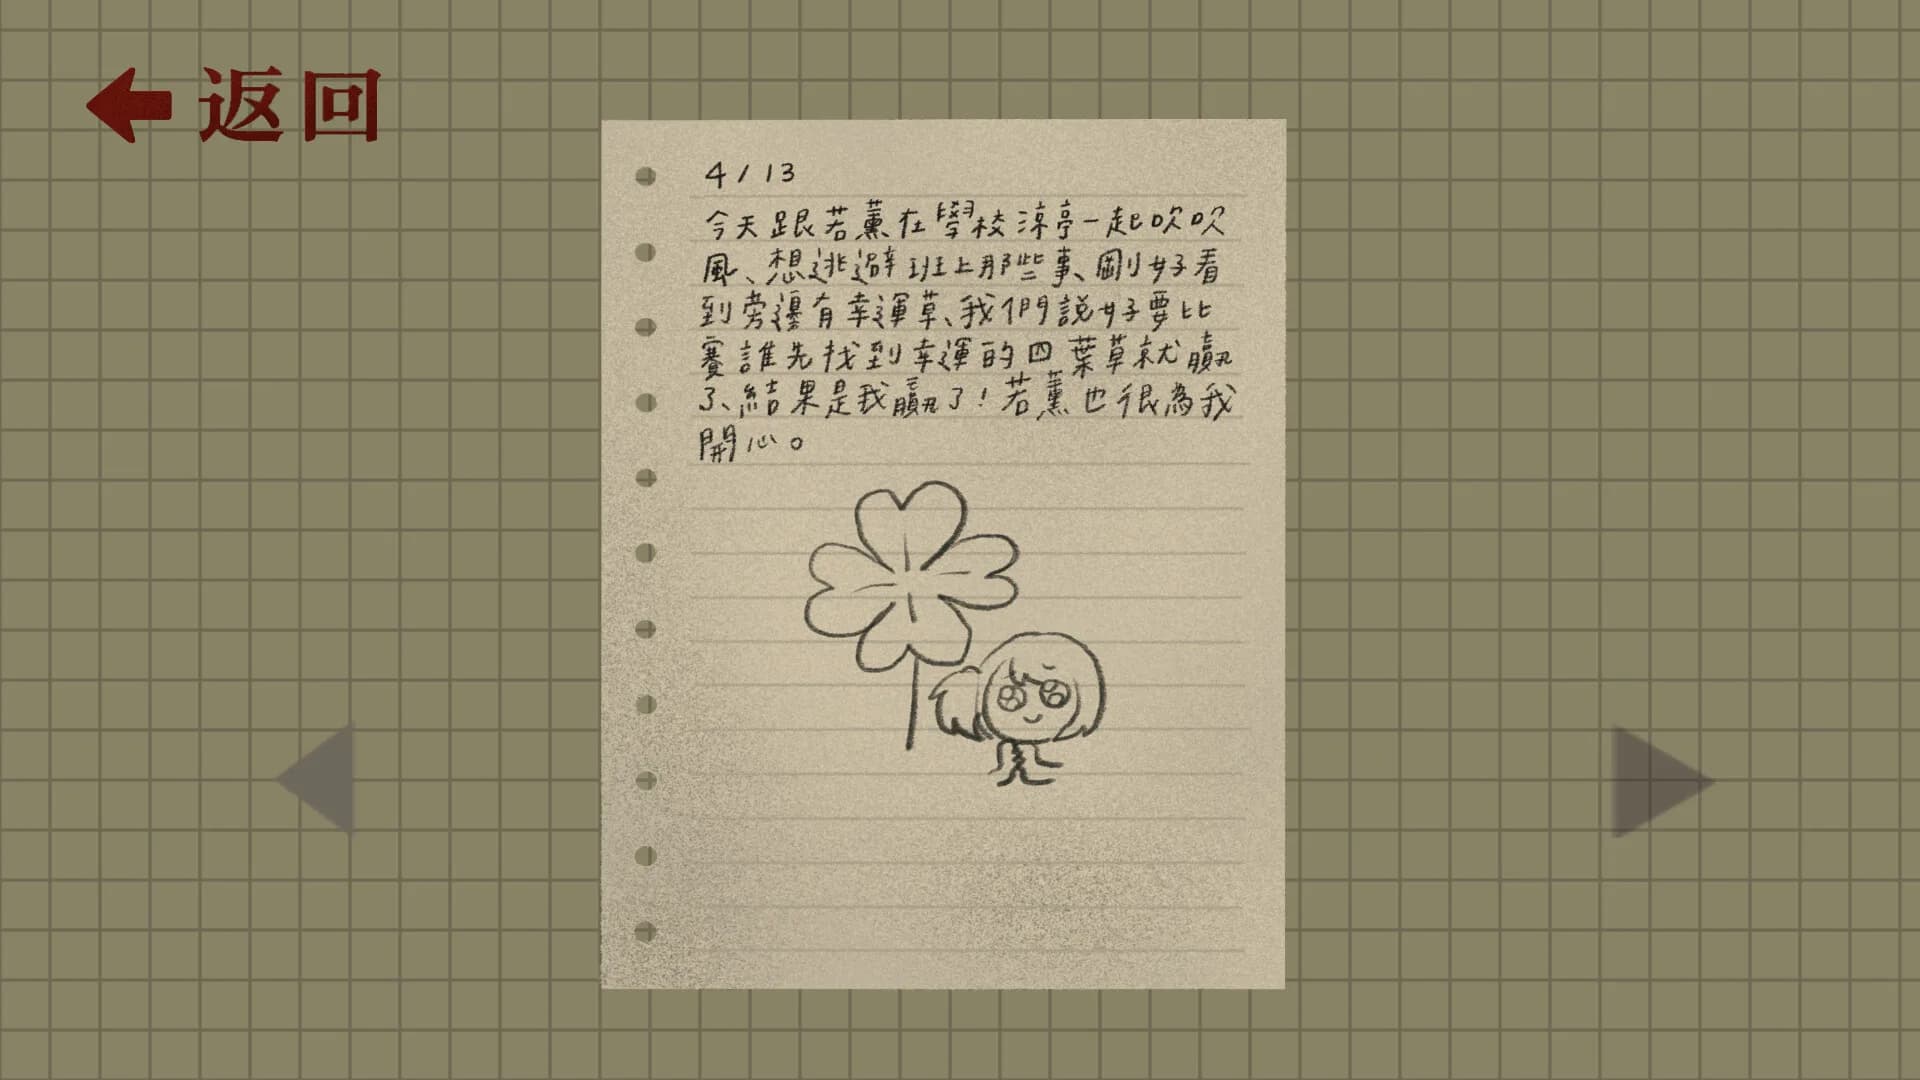 返回
4/13
今天跟若薰在學校涼亭一起吹吹
風、想逃避班上那些事、剛好看
到旁邊有幸運草、我們說好要比
賽誰先找到幸運的四葉草就贏
了、結果是我贏了!若薰也很為我
開心。